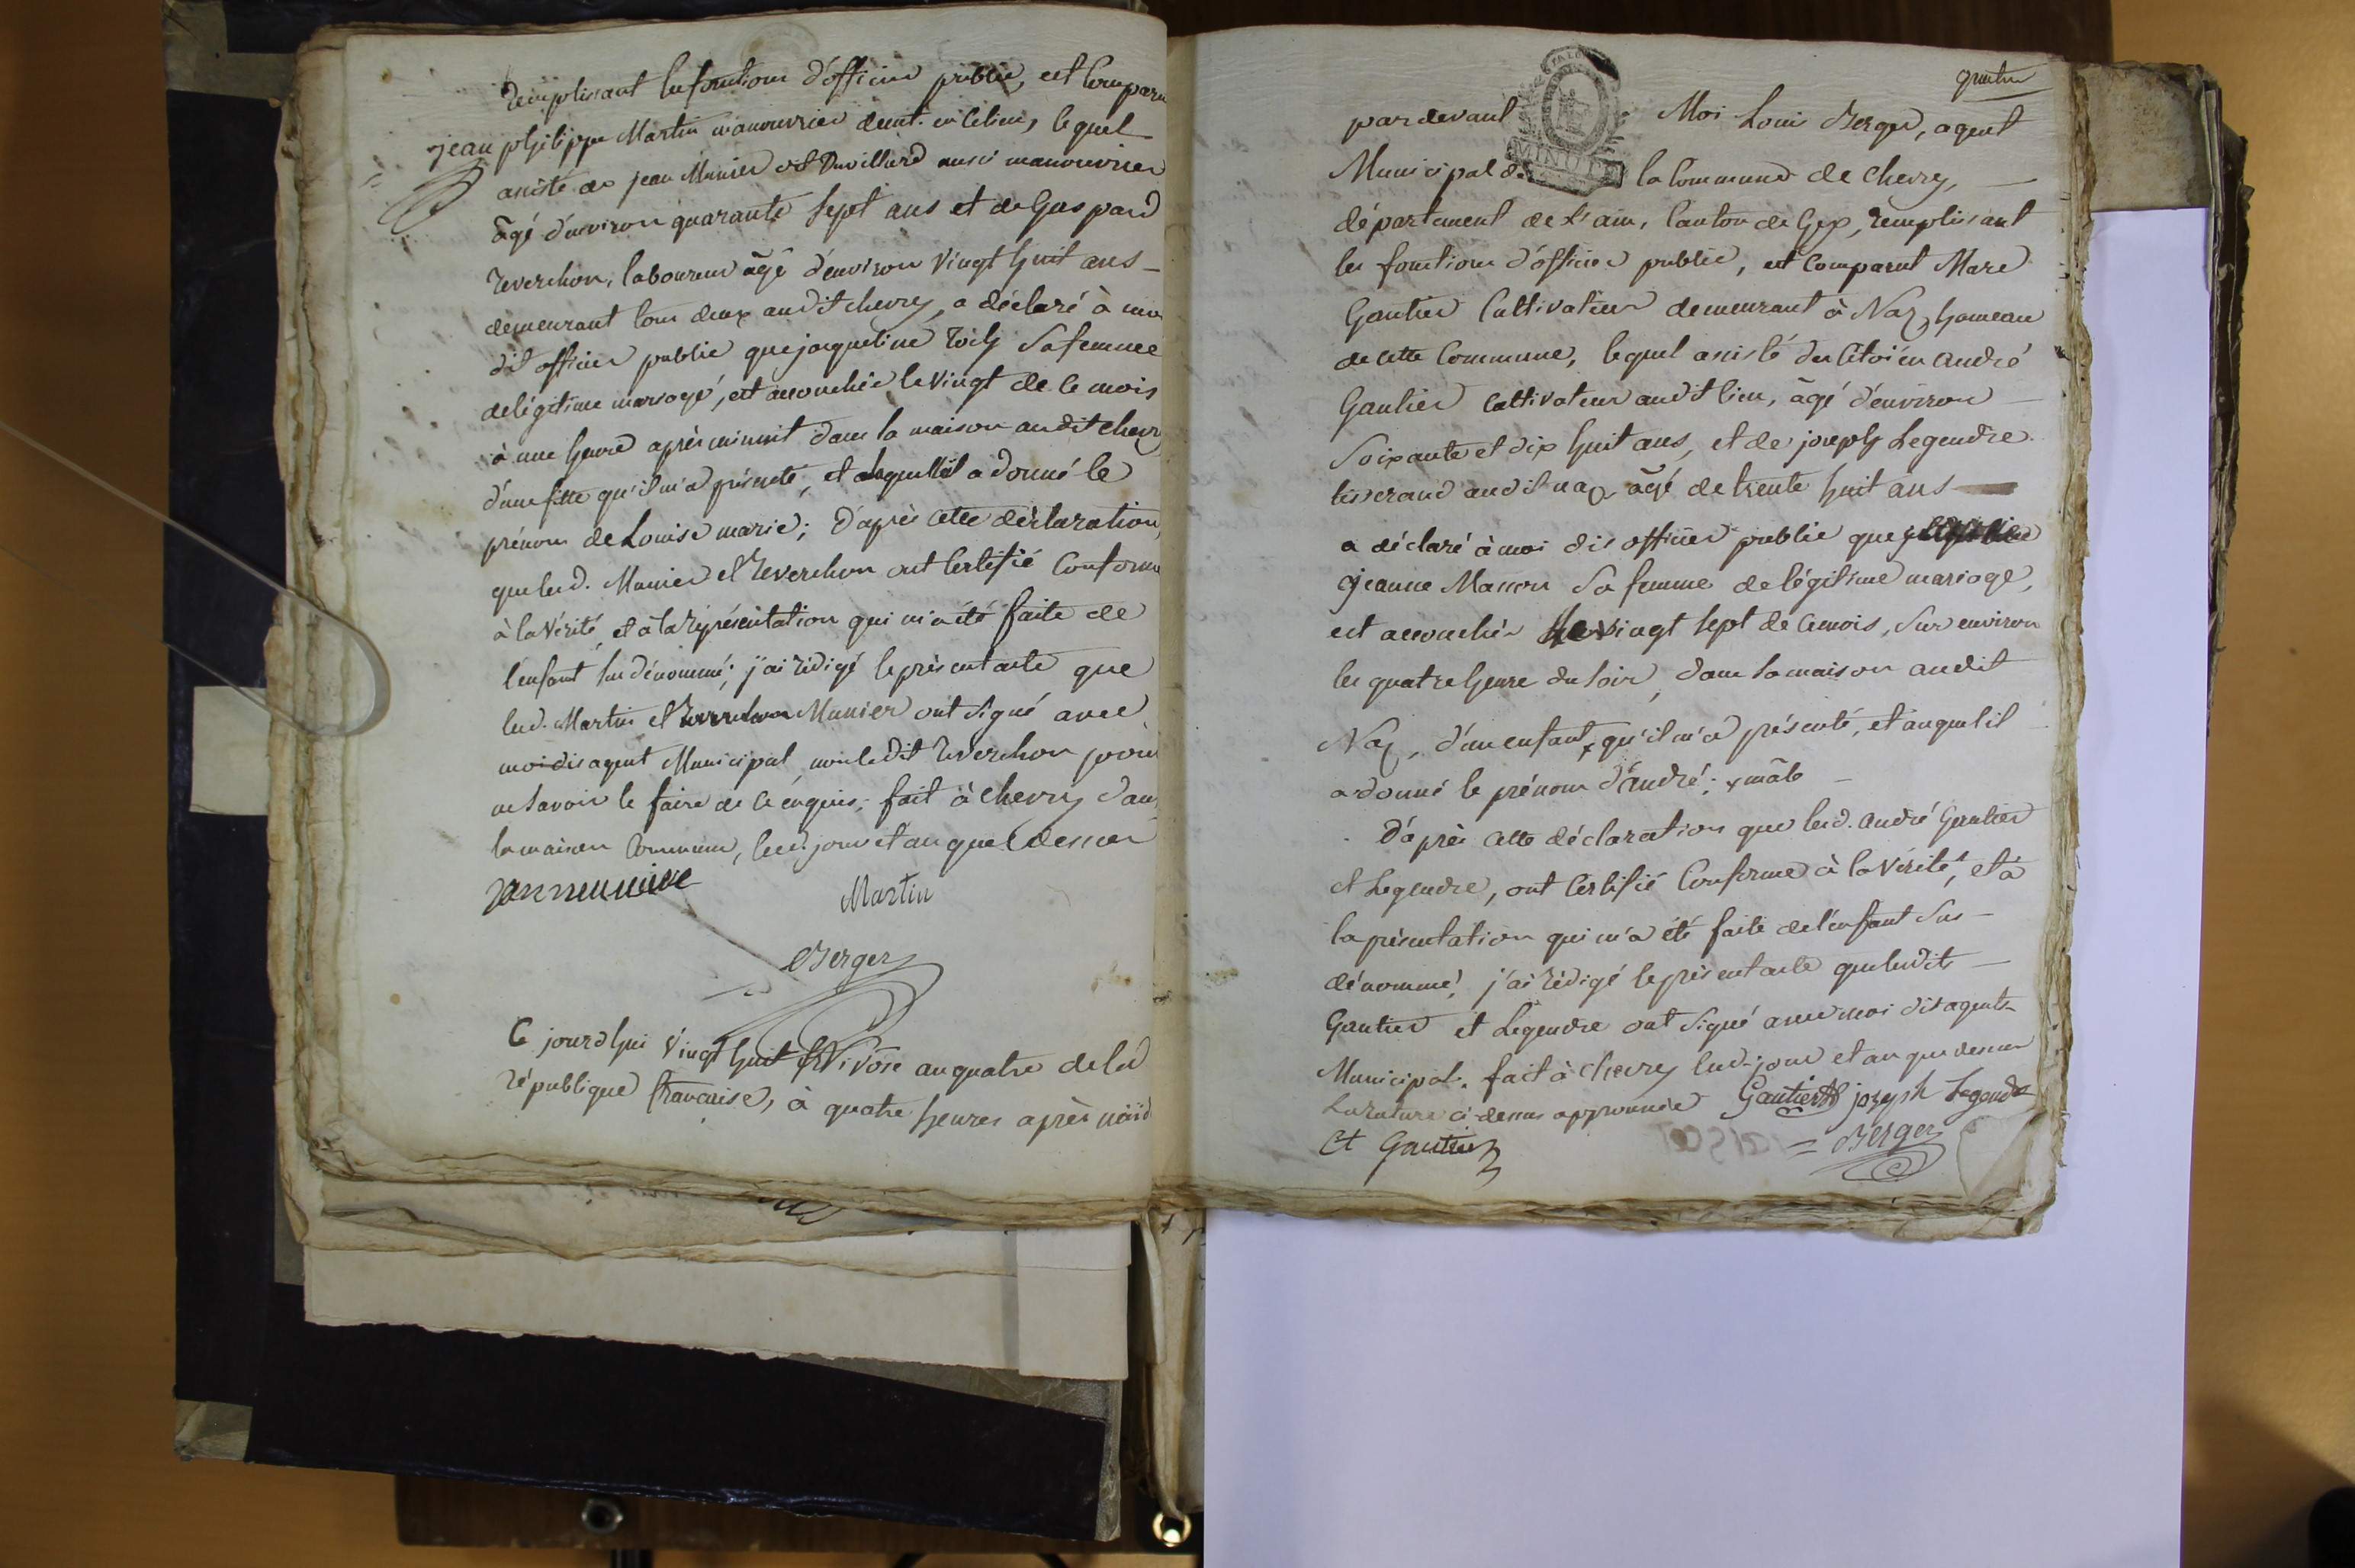 remplissant les fonctions d'officier public, est comparu
jean philippe Martin manouvrier demt. en ce lieu, lequel
assisté de jean Munier dit Duvillard aussi manouvrier
âgé d'environ quarante sept ans et de Gaspard
Reverchon, laboureur âgé d'environ vingt huit ans –
demeurant tous deux audit chevry, a déclaré à moi
dit officier public que jacqueline sa femme
de légitime mariage, est accouchée le vingt de ce mois
à une heure après minuit dans la maison audit chevry
d'une fille qu'il m'a présenté, et a laquelle il a donné le
prénom de Louise marie; D'après cette déclaration,
que lesd. Munier et Reverchon ont certifié conforme
à la vérité, et à la représentation qui m'a été faite de
l'enfant sus dénommé; j'ai rédigé le présent acte que
lesd. Martin et Munier ont signé avec
moi dit agent Municipal, non ledit Reverchon pour
ne savoir le faire de ce enquis; fait à chevry dans
la maison commune, lesd. jour et an que dessus
Martin
Berger
Ce jourd'hui vingt huit Nivôse an quatre de la
république française, à quatre heures après midi
quatre
pardevant Moi Louis Berger, agent
MINUTE
Municipal de la commune de chevry, –
département de l'ain, canton de Gex, remplissant
les fonctions d'officier public, est comparut Marc
Gautier cultivateur demeurant à Naz, hameau
de cette commune, lequel assisté du citoien andré
Gautier cultivateur audit lieu, âgé d'environ –
soixante et dix huit ans, et de joseph Legendre
tisserand audit naz âgé de trente huit ans –
a déclaré à moi dit officier public que
jeanne Masson sa femme de légitime mariage,
est accouchée le vingt sept de ce mois, sur environ
les quatre heure du soir, dans sa maison audit
Naz, d'un enfant x qu'il m'a présenté, et auquel il
a donné le prénom d'andré; x mâle –
D'après cette déclaration que lesd. andré Gautier
et Legendre, ont certifié conforme à la vérité, et à
la présentation qui m'a été faite de l'enfant sus –
dénommé, j'ai rédigé le présent acte que lesdits –
Gautier et Legendre ont signé avec moi dit agent
Municipal. fait à chevry lesd. jour et an que dessus
la rature ci-dessus approuvée Gautier joseph Legendre
et Gautier Berger